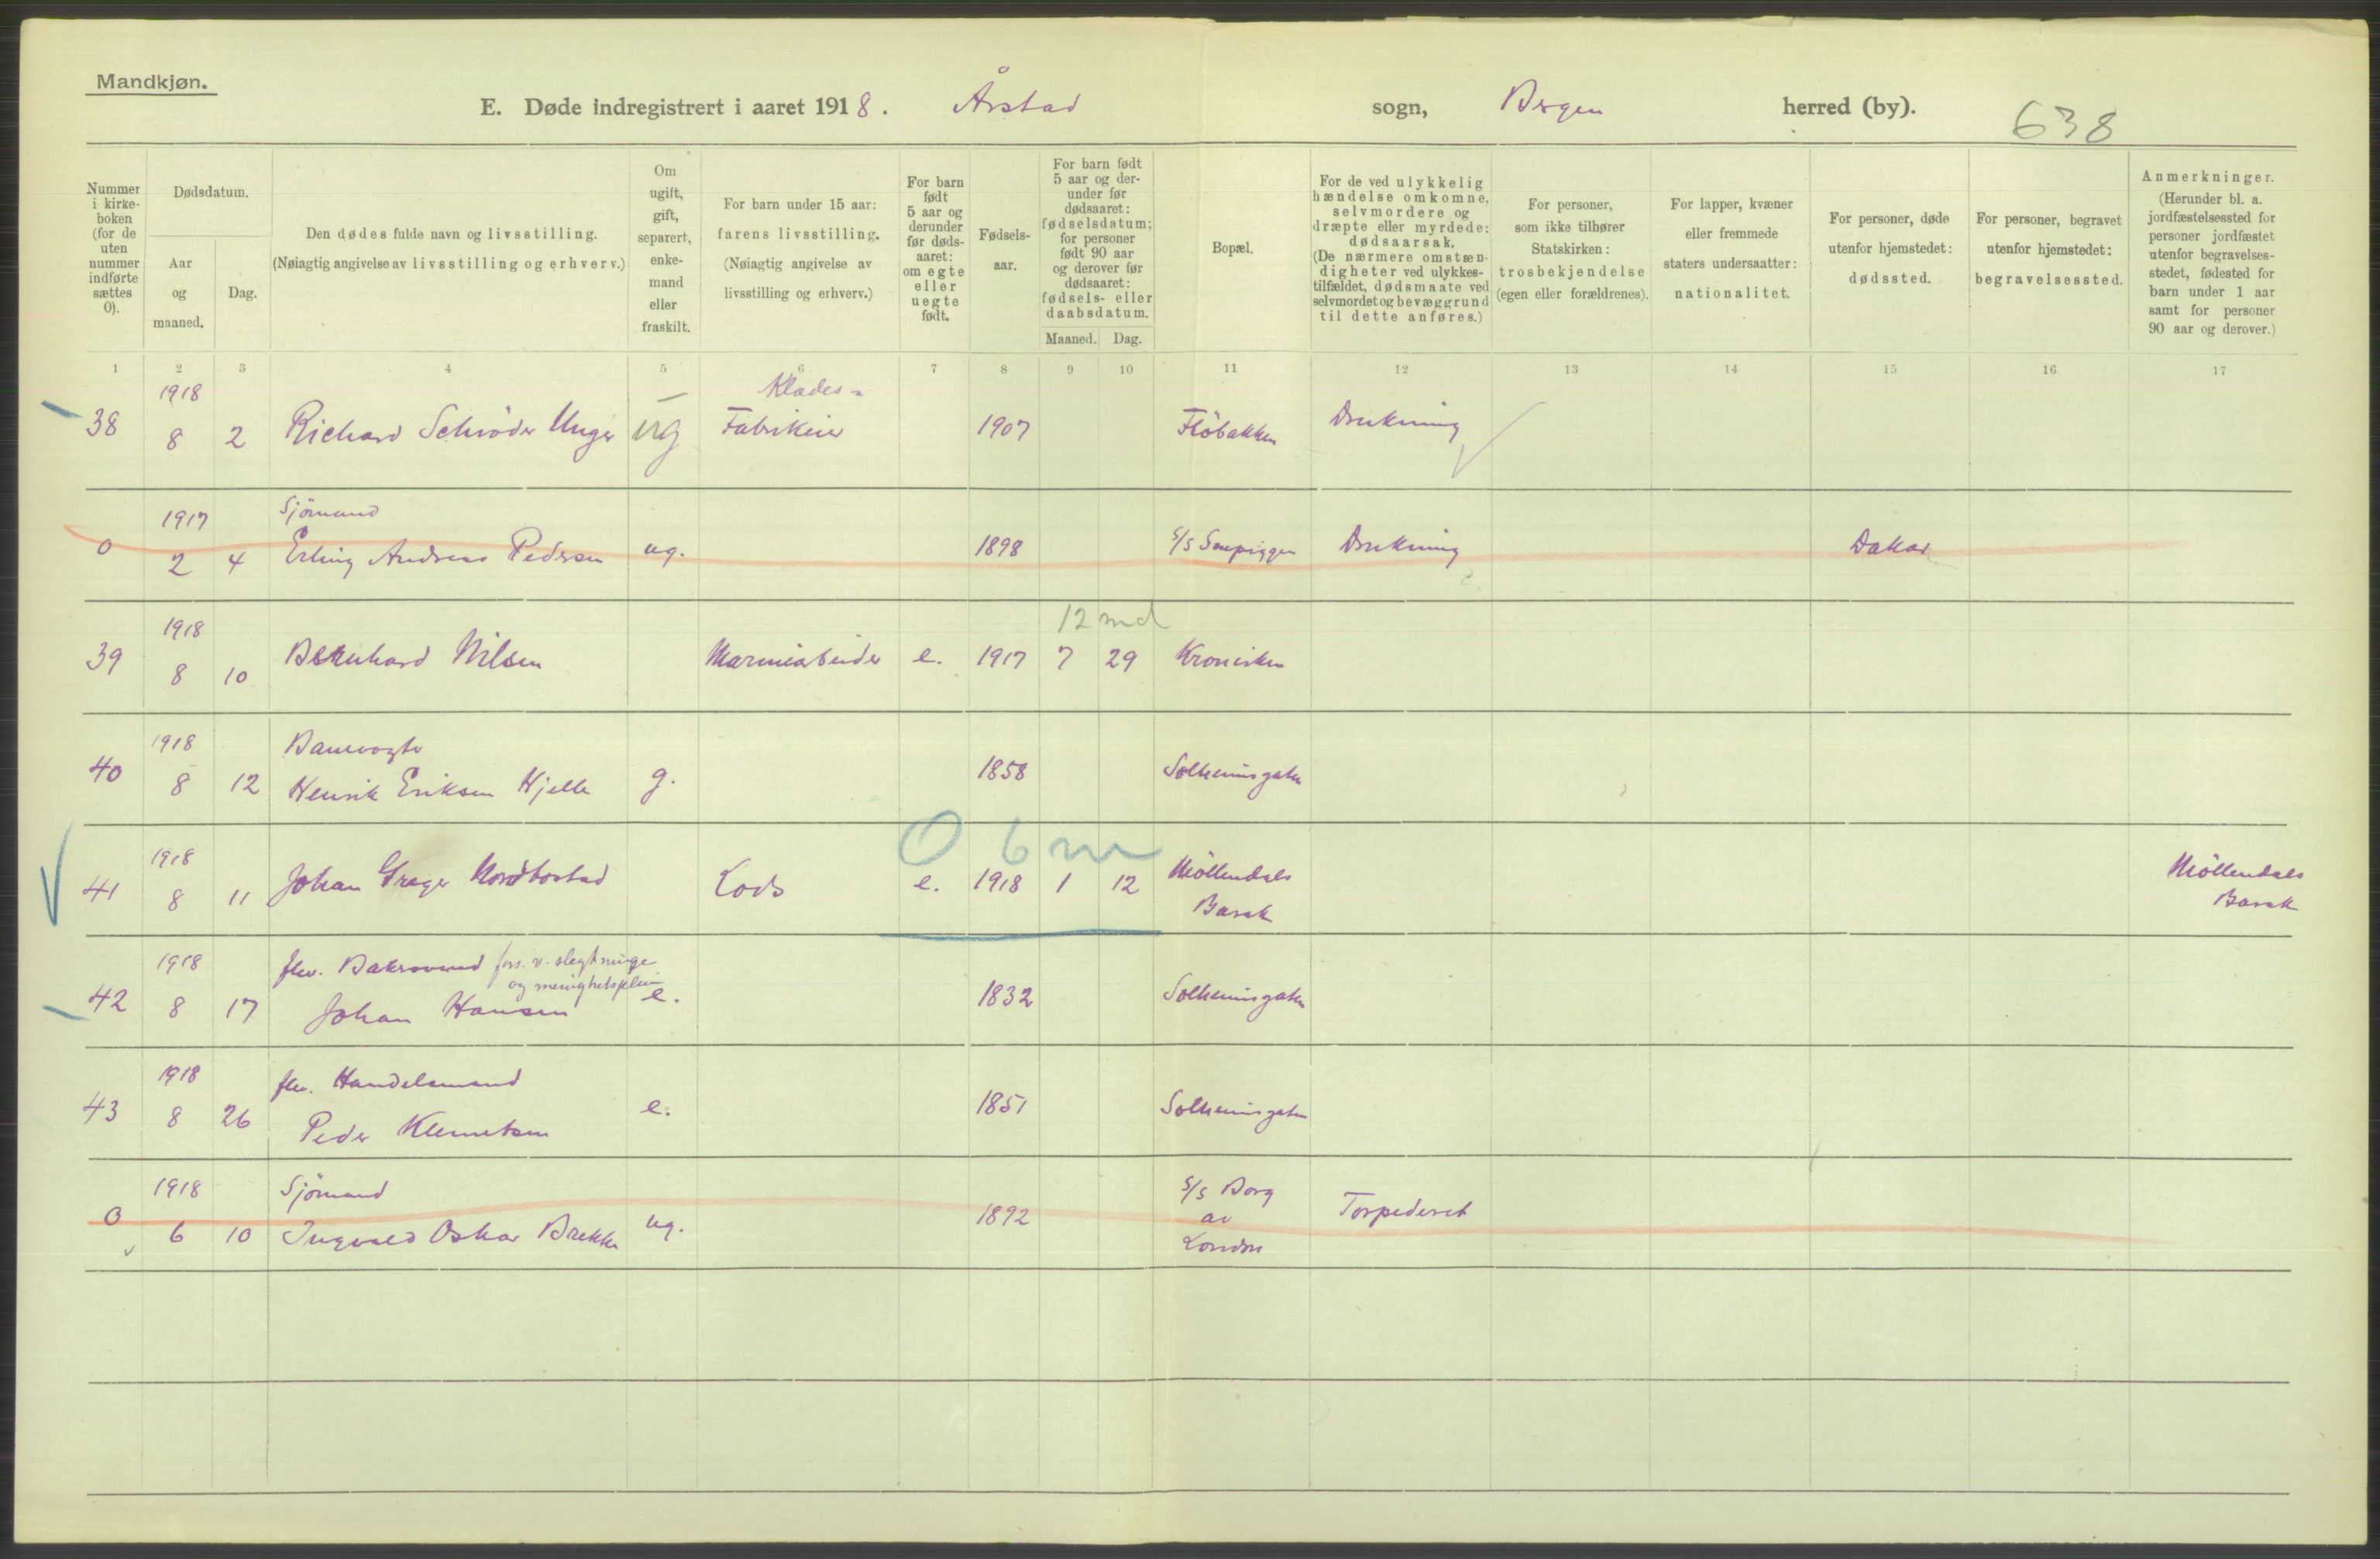 Mandkjøn.
E. Døde indregistrert i aaret 1918. Årstad sogn, Bergen herred (by). 638
Nummer i kirke-boken (for de uten nummer indførte sættes 0).
Dødsdatum.
Aar og maaned.
Dag.
Den dødes fulde navn og livsstilling.
(Nøiagtig angivelse av livsstilling og erhverv.)
Om ugift, gift, separert, enke-mand eller fraskilt.
For barn under 15 aar:
farens livsstilling.
(Nøiagtig angivelse av livsstilling og erhverv.)
For barn født 5 aar og derunder før døds-aaret: om egte eller uegte født.
Fødsels-aar.
For barn født 5 aar og der-under før dødsaaret: fødselsdatum; for personer født 90 aar og derover før dødsaaret: fødsels- eller daabsdatum.
Maaned. Dag.
Bopæl.
For de ved ulykkelig hændelse omkomne, selvmordere og dræpte eller myrdede: dødsaarsak.
(De nærmere omstæn-digheter ved ulykkes-tilfældet, dødsmaate ved selvmordet og bevæggrund til dette anføres.)
For personer, som ikke tilhører Statskirken: trosbekjendelse (egen eller forældrenes).
For lapper, kvæner eller fremmede staters undersaatter: nationalitet.
For personer, døde utenfor hjemstedet: dødssted.
For personer, begravet utenfor hjemstedet: begravelsessted.
Anmerkninger.
(Herunder bl. a. jordfæstelsessted for personer jordfæstet utenfor begravelses-stedet, fødested for barn under 1 aar samt for personer 90 aar og derover.)
1 2 3 4 5 6 7 8 9 10 11 12 13 14 15 16 17
1918 Klædes-
38 8 2 Richard Schrøder Unger ug Fabrikeier 1907 Flöbakken Drukning
1917 Sjömand
0 2 4 Erling Andreas Pedersen ug. 1898 S/S Drukning Dakar
1918 12 md
39 8 10 Bernhard Nilsen e. 1917 7 29 Kroneviken
1918 Banevogter
40 8 12 Henrik Eriksen Hjelle g. 1858 Solheimsgaten
1918 0 6 m
41 8 11 Johan Greger Nordbostad Lods e. 1918 1 12 Möllendals Barak Möllendals Barak
1918 flv. fors. v. slegtninge
og menighetspleien
42 8 17 Johan Hansen e. 1832 Solheimsgaten
1918 flv. Handelsmand
43 8 26 Peder Klemetsen e. 1851 Solheimsgaten
1918 Sjömand
0 6 10 Ingvald Oskar Brekke ug. 1892 S/S Borg av London Torpederet